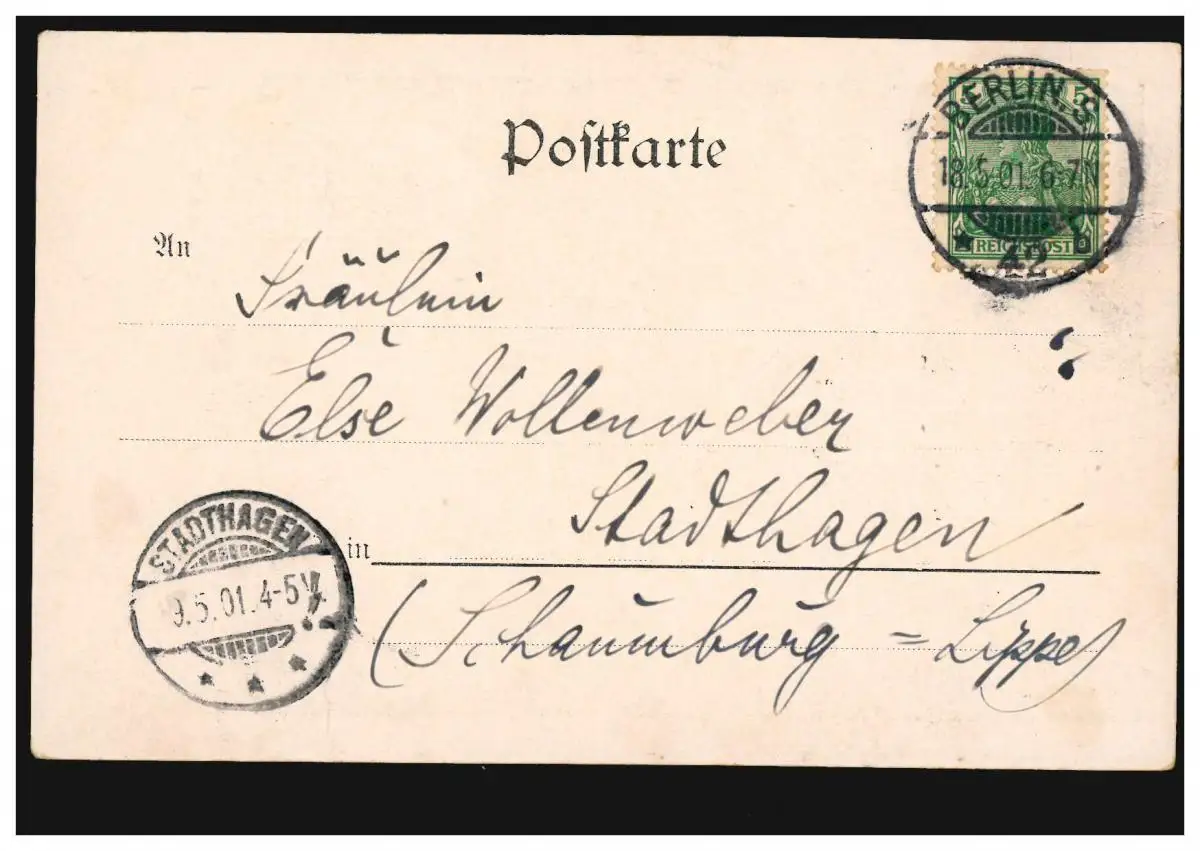 Postkarte
BERLIN. S
5 5
18.5.01.6-7N
REICHSPOST
42
An
Fräulein
Else Wollenweber
Stadthagen
in
(Schaumburg = Lippe)
STADTHAGEN
9.5.01.4-5V.